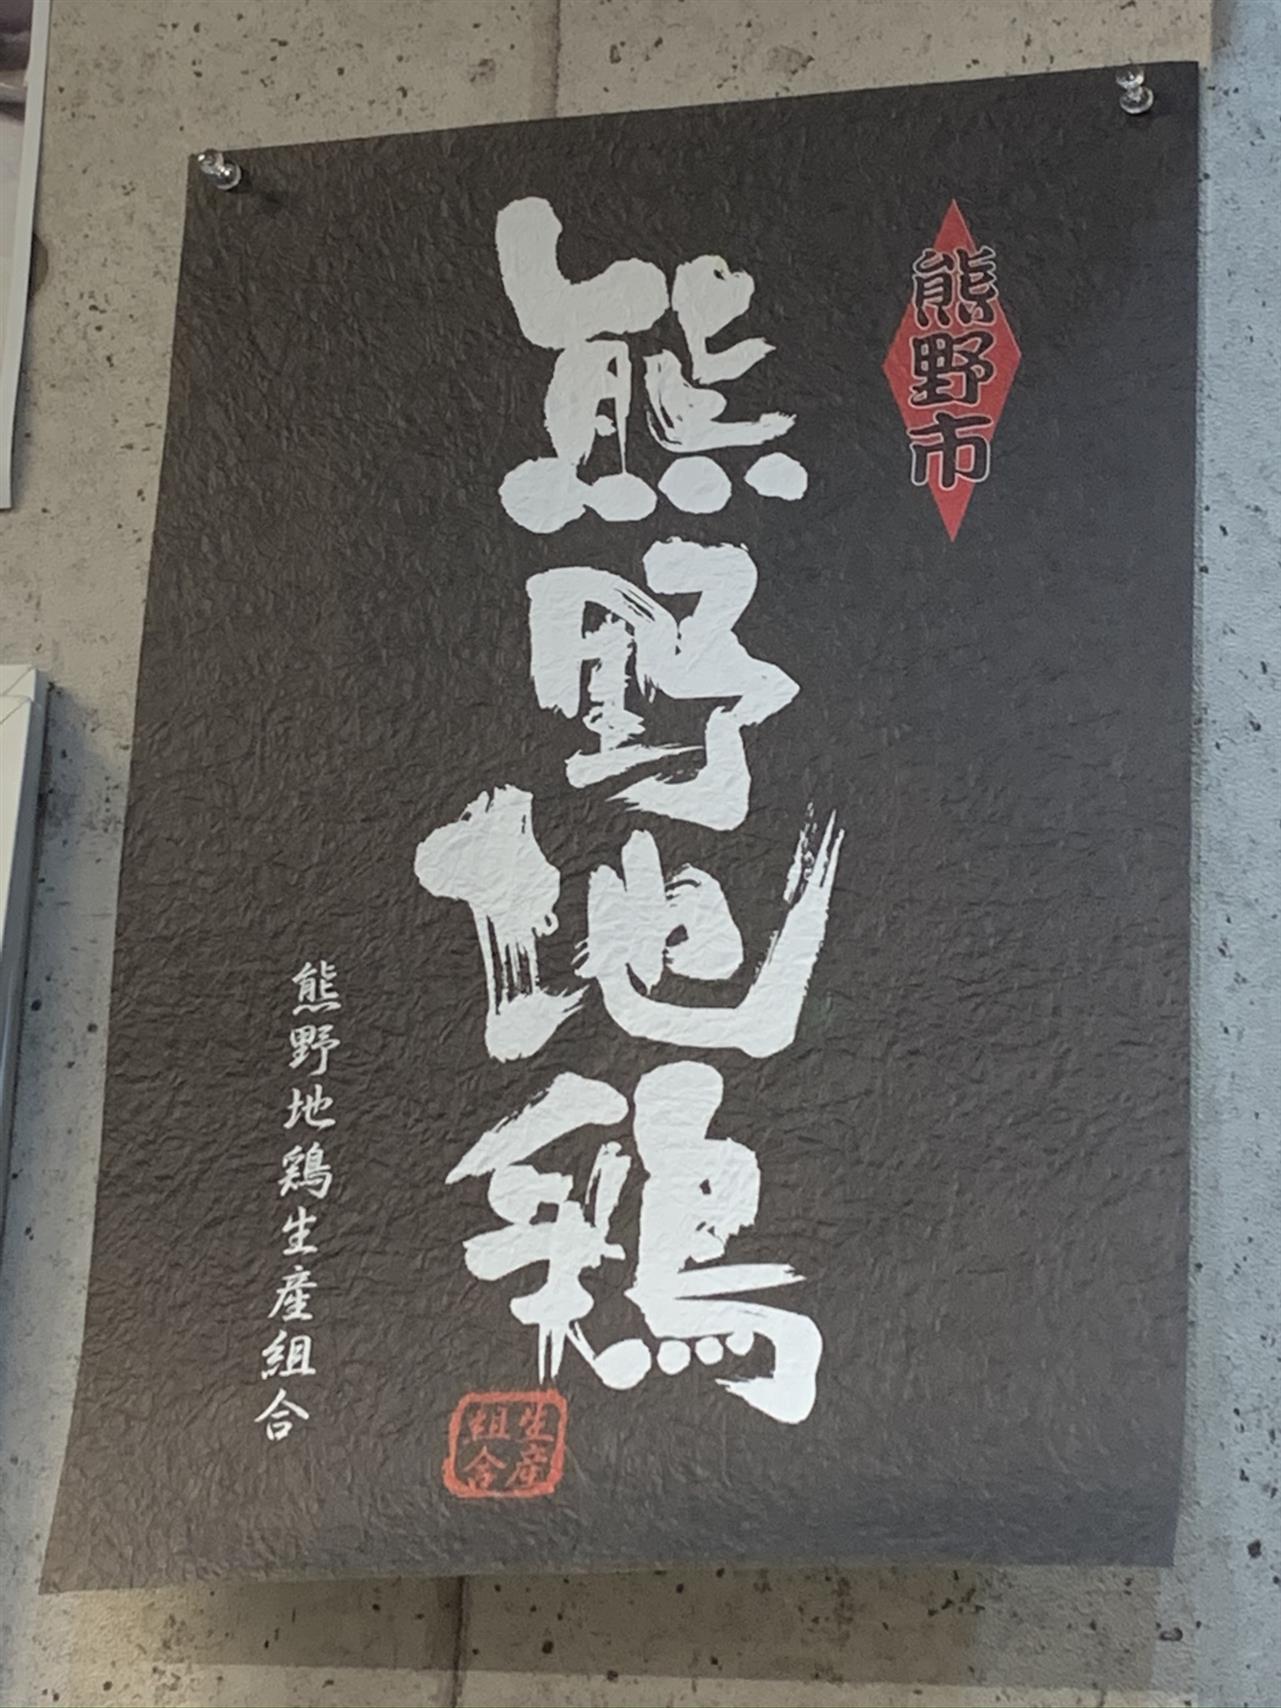 熊野市
熊野地鶏
熊野地鶏生産組合
生産
組合